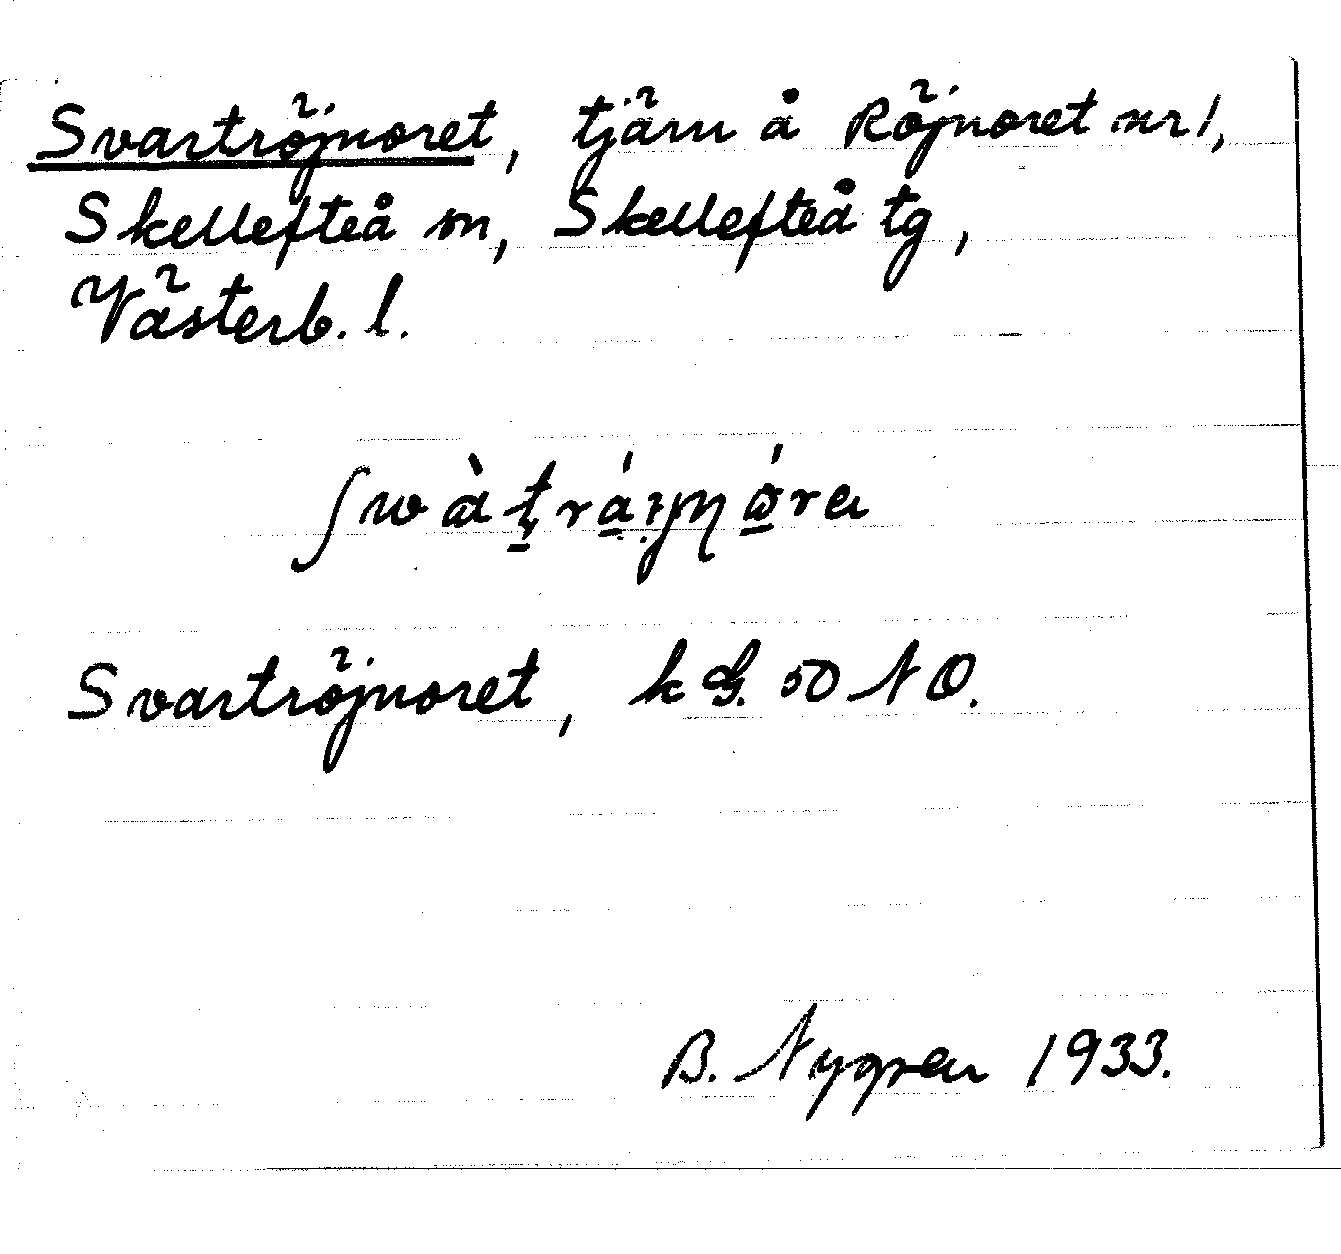 Svartröjnoret, tjärn å Röjnoret nr 1,
Skellefteå sn, Skellefteå tg,
Västerb. l.
Svartröjnoret, k G. 50 NO.
B. Nygren 1933.